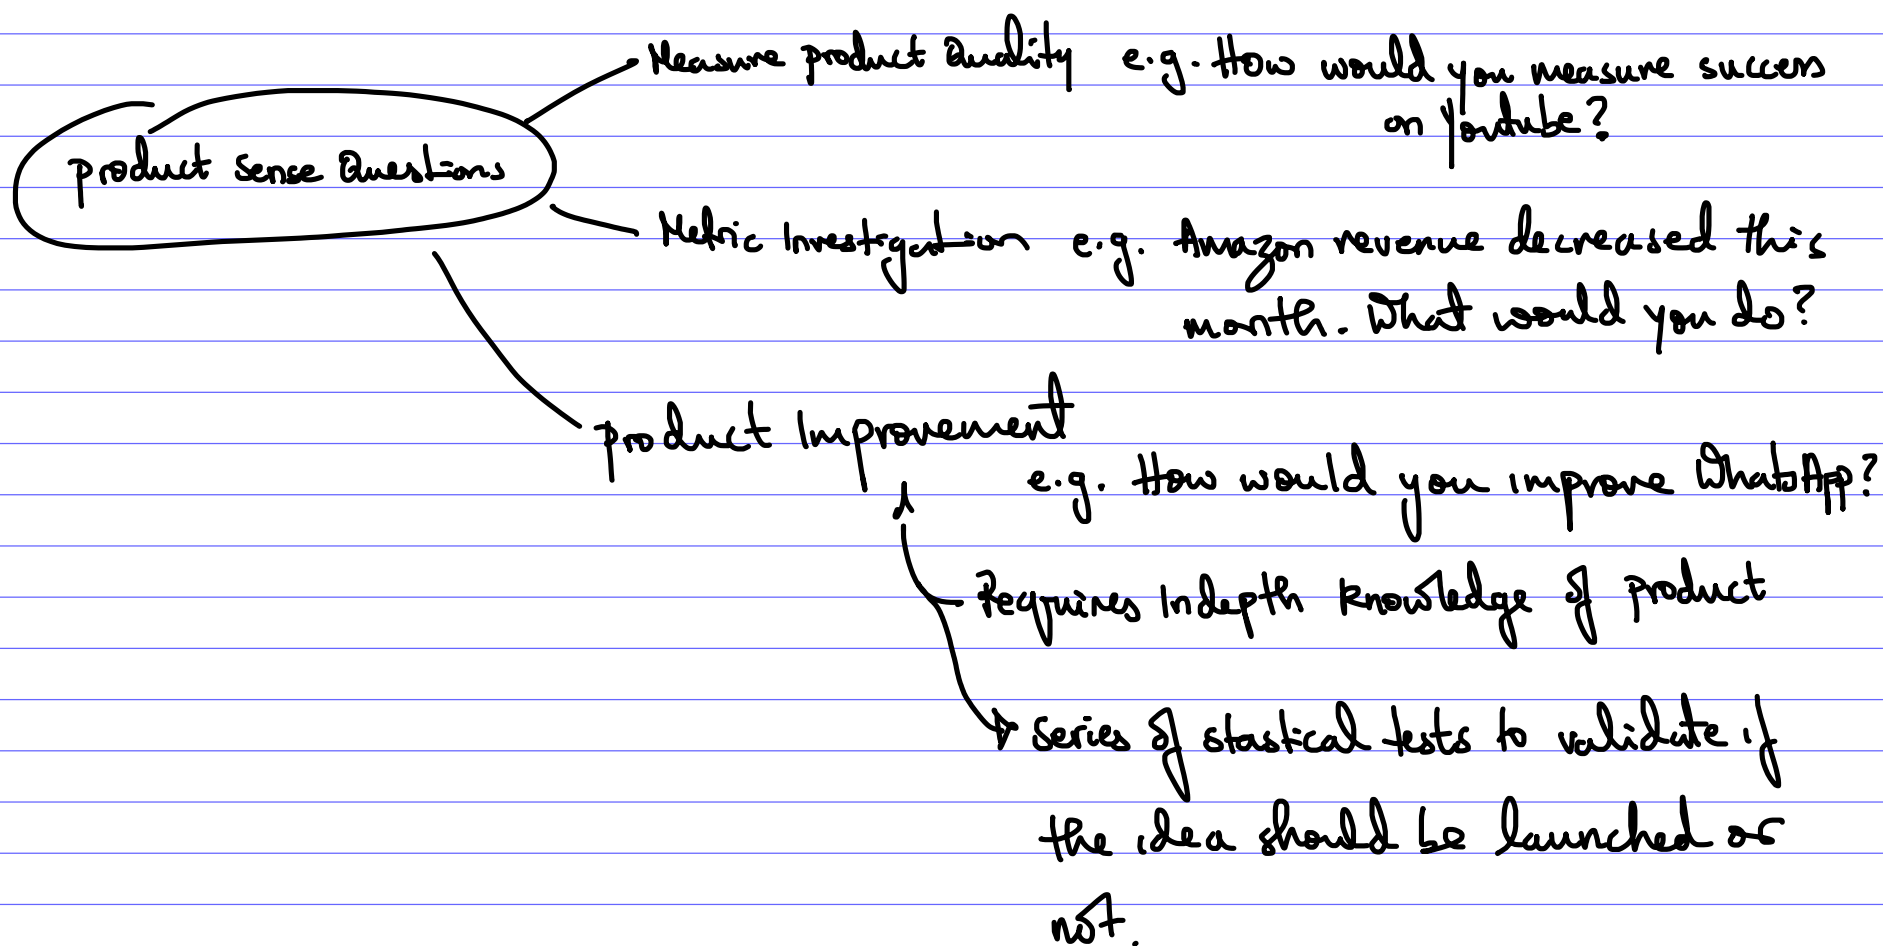 Measure product Quality e.g. How would you measure success
on Youtube?
product Sense Questions
Metric Investigation e.g. Amazon revenue decreased this
month. What would you do?
product Improvement
e.g. How would you improve WhatsApp?
Requires Indepth knowledge of product
series of stastical tests to validate if
the idea should be launched or
not.